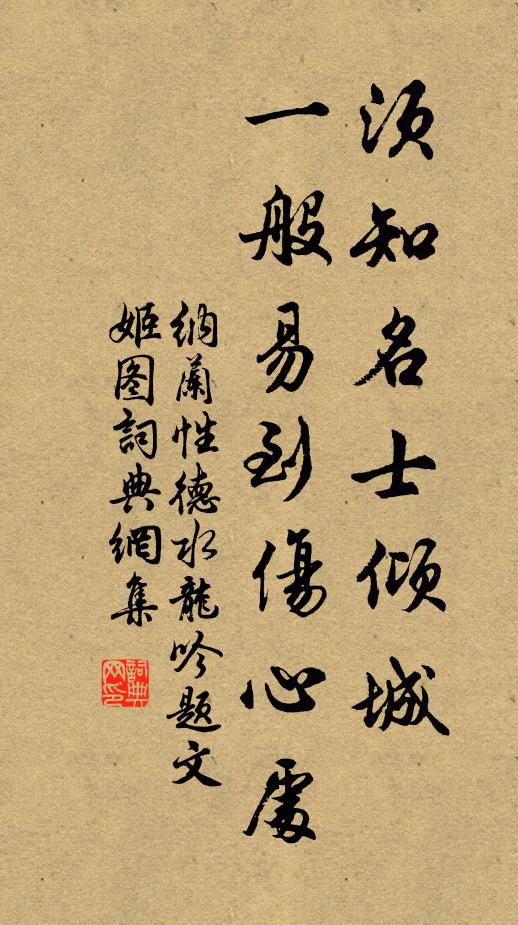 須知名士傾城
一般易到傷心處
納蘭性德水龍吟題文
姬图詞典網集
詞典
网印